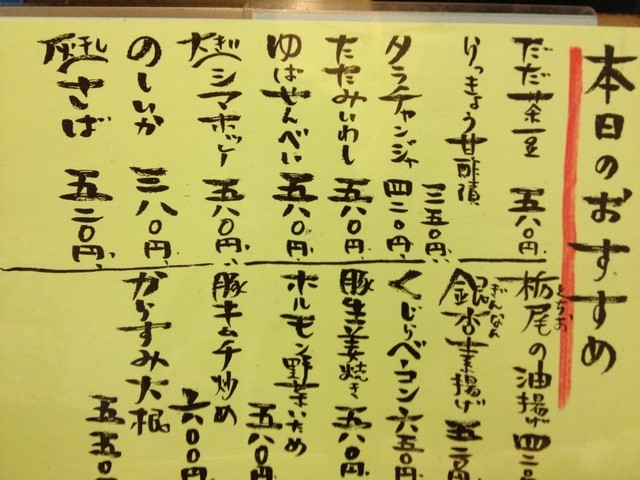 本日のおすすめ
だだ茶豆 五八〇円
らっきょう甘酢漬 三五〇円
タラチャンジャ 四二〇円
たたみいわし 五八〇円
ゆばせんべい 五八〇円
大ぎりシマホッケ 五八〇円
のしいか 三八〇円
灰干しさば 五二〇円
栃尾の油揚げ 四二〇円
とちお
銀杏素揚げ 五二〇円
ぎんなん
くじらベーコン 六五〇円
豚生姜焼き 五八〇円
ホルモン野菜いため 五八〇円
豚キムチ炒め 六〇〇円
からすみ大根 五五〇円